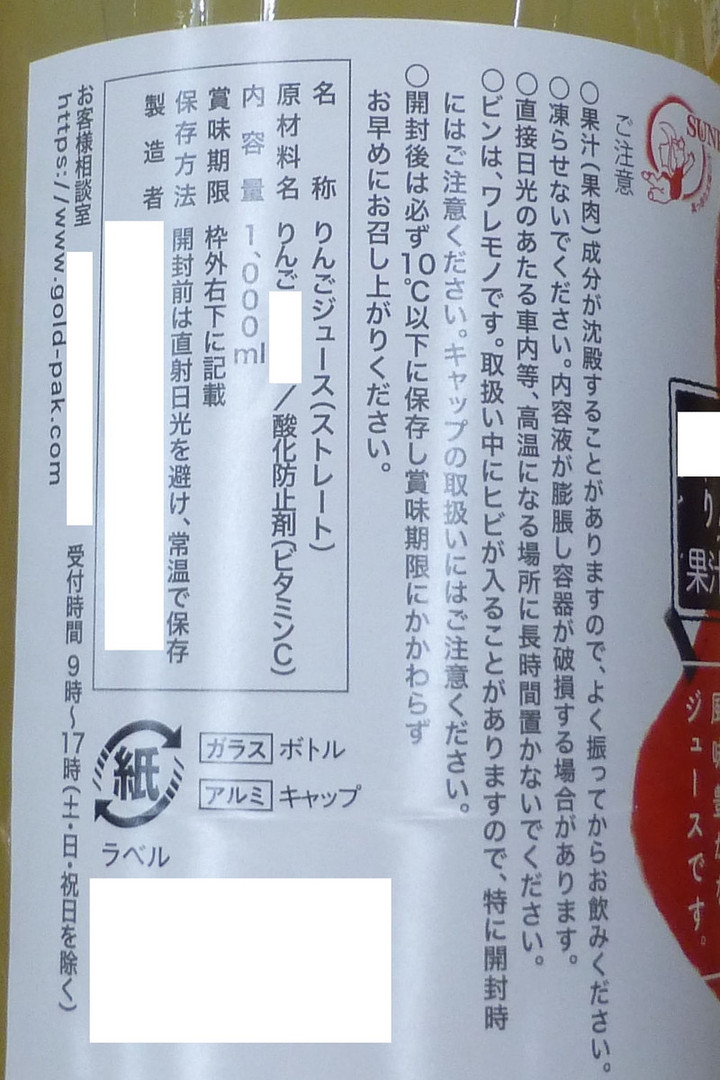 ご注意
○果汁(果肉)成分が沈殿することがありますので、よく振ってからお飲みください。
○凍らせないでください。内容液が膨脹し容器が破損する場合があります。
○直接日光のあたる車内等、高温になる場所に長時間置かないでください。
○ビンは、ワレモノです。取扱い中にヒビが入ることがありますので、特に開封時
にはご注意ください。キャップの取扱いにはご注意ください。
○開封後は必ず10℃以下に保存し賞味期限にかかわらず
お早めにお召し上がりください。
名称 りんごジュース(ストレート)
原材料名 りんご/酸化防止剤(ビタミンC)
内容量 1,000ml
賞味期限 枠外右下に記載
保存方法 開封前は直射日光を避け、常温で保存
製造者
お客様相談室 受付時間 9時〜17時(土・日・祝日を除く)
https://www.gold-pak.com
ガラス ボトル
アルミ キャップ
紙
ラベル
ジュースです。